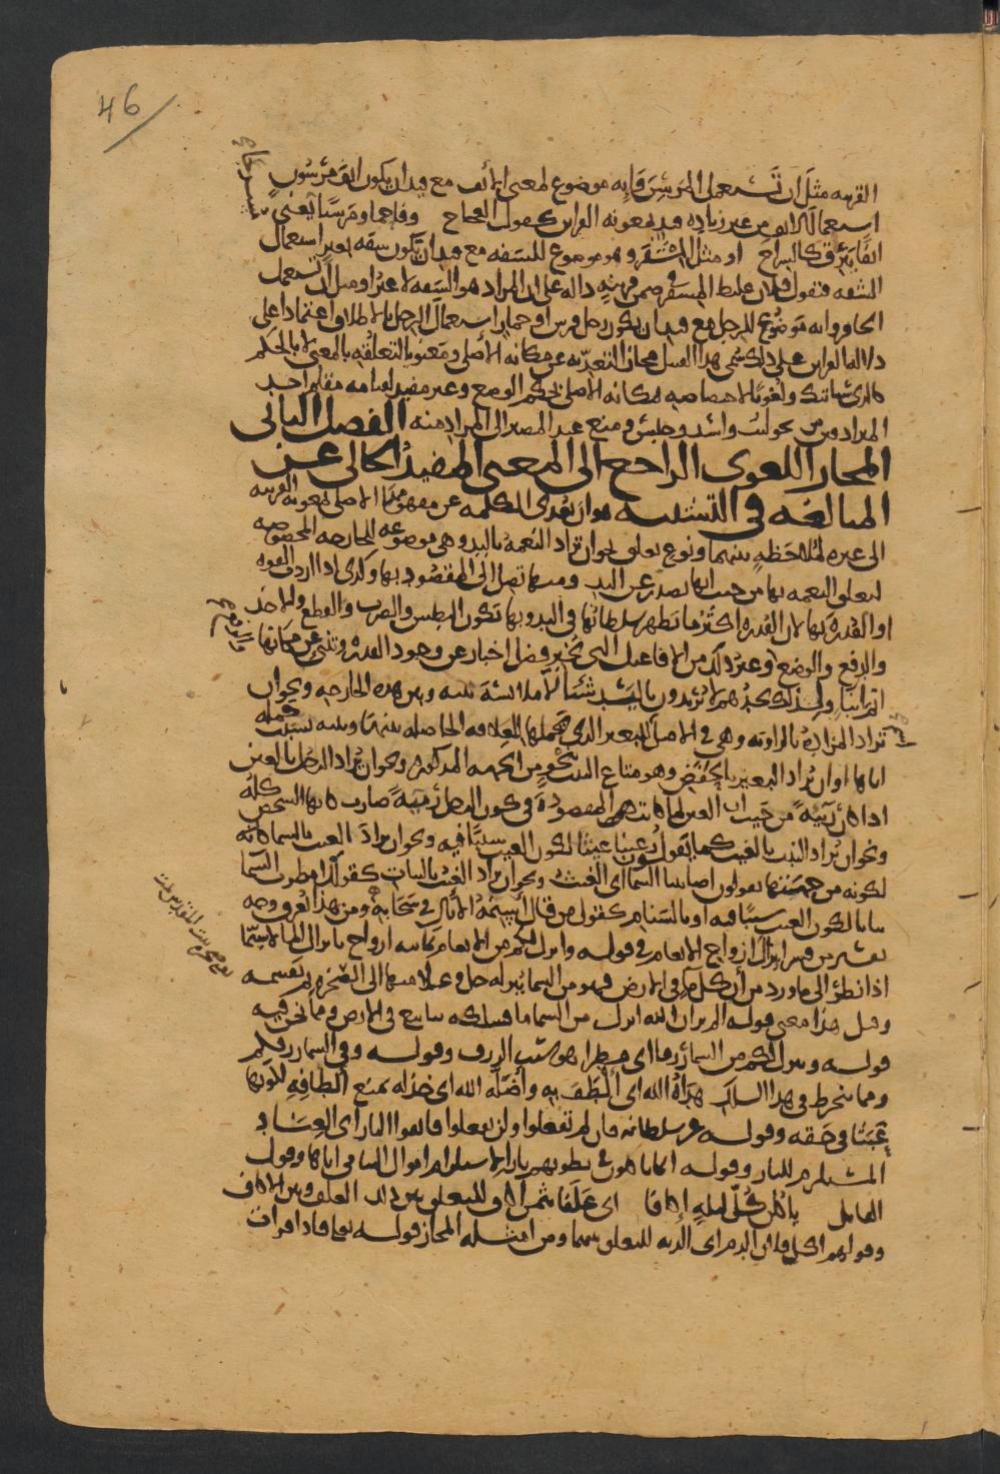 46
القرينه مثل ان تستعمل المرسن فانه موضوع لمعنى الانف مع قيد ان يكون انف مرسون
استعمال الانف من غير زياده قيد بمعونه القراين كقول العجاج وفاحما ومرسنا يعني
انفا يبرق كالسراج او مثل المشفر وهو موضوع للشفه مع قيد ان تكون شفه بعير استعمال
الشفه فتقول فلان غليظ المشفر في ضمن قرينه داله على ان المراد هو الشفه لا غير او مثل ان تستعمل
الحافر وانه موضوع للرجل مع قيد ان يكون رجل فرس او حمار استعمال الرجل بالاطلاق اعتمادا على
دلاله القراين على ذلك سمي هذا القبيل مجازا لتعديه عن مكانه الاصلي ومعنويا لتعلقه بالمعنى لا بالحكم
الذي سياتيك ولغويا لاختصاصه بمكانه الاصلي بحكم الوضع وغير مفيد لقيامه مقام احد
المترادفين من نحو ليث واسد وحبس ومنع عند المصير الى المراد منه الفصل الثاني
المجاز اللغوي الراجع الى المعنى المفيد الخالي عن
المبالغه في التشبيه هو ان تعدى الكلمه عن مفهومها الاصلي بمعونه القرينه
الى غيره لملاحظه بينهما ونوع تعلق نحو ان تراد النعمه باليد وهي موضوعه للجارحه المخصوصه
لتعلق النعمه بها من حيث انها تصدر عن اليد ومنها تصل الى المقصود بها وكذى اذا اردت القوه
او القدره بها لان القدره اكثر ما تظهر سلطانها في اليد وبها تكون البطش والضرب والقطع والاخذ
والدفع والوضع وغير ذلك من الافاعيل التي تخبر فضل اخبار عن وجود القدره وتنبئ عن مكانها
اتم انباء ولذلك تجدهم لا يريدون باليد شيئا لا ملابسة بينه وبين هذه الجارحه ونحو ان
تراد المزاده بالراويه وهي في الاصل للبعير الذي يحملها للعلاقه الحاصله بينها وبينه بسبب حمله
اياها او ان يراد البعير بالحفض وهو متاع البيت بنحو من الجهه المذكوره ونحو ان يراد الرجل بالعين
اذا كان ربيئة من حيث ان العين لما كانت هي المقصودة في كون الرجل ربيئة صارت كانها الشخص كله
ونحو ان يراد النبت بالغيث كما يقولون رعينا غيثا لكون الغيث سببا فيه ونحو ان يراد الغيث بالسما كانه
لكونه من جهتها يقولون اصابتنا السما اي الغيث ونحو ان يراد الغيث بالنبات كقولك امطرت السما
نباتا لكون الغيث سببا فيه او بالسنام كقول من قال اسنمة الآبال في سحابه ومن هذا تعرف وجه
تفسير من فسر انزال ازواج الانعام في قوله وانزل لكم من الانعام ثمانيه ازواج بانزال الما لا سيما
اذا نظر الى ما ورد من ان كل ما في الارض فهو من السما ينزله جل وعلا منها الى الصخره ثم يقسمه
وقيل هذا معنى قوله الم تر ان الله انزل من السما ما فسلكه ينابيع في الارض ومما نحن فيه
قوله وينزل لكم من السما رزقا اي مطرا هو سبب الرزق وقوله وفي السما رزقكم
ومما ينخرط في هذا السلك هداه الله اي الطف به واضله الله اي خذله بمنع الطافه لكونها
عبثا في حقه وقوله عز سلطانه فان لم تفعلوا ولن تفعلوا فاتقوا النار اي العناد
المستلزم للنار وقوله انما ياكلون في بطونهم نارا لاستلزام اموال اليتامى اياها وقول
القايل ياكلن كل ليلة اكافا اي علفا بثمن اكاف للتعلق بين ذلك العلف وبين الاكاف
وقولهم اكل فلان الدم اي الديه للتعلق بينهما ومن امثله المجاز قوله تعا فاذا قرات